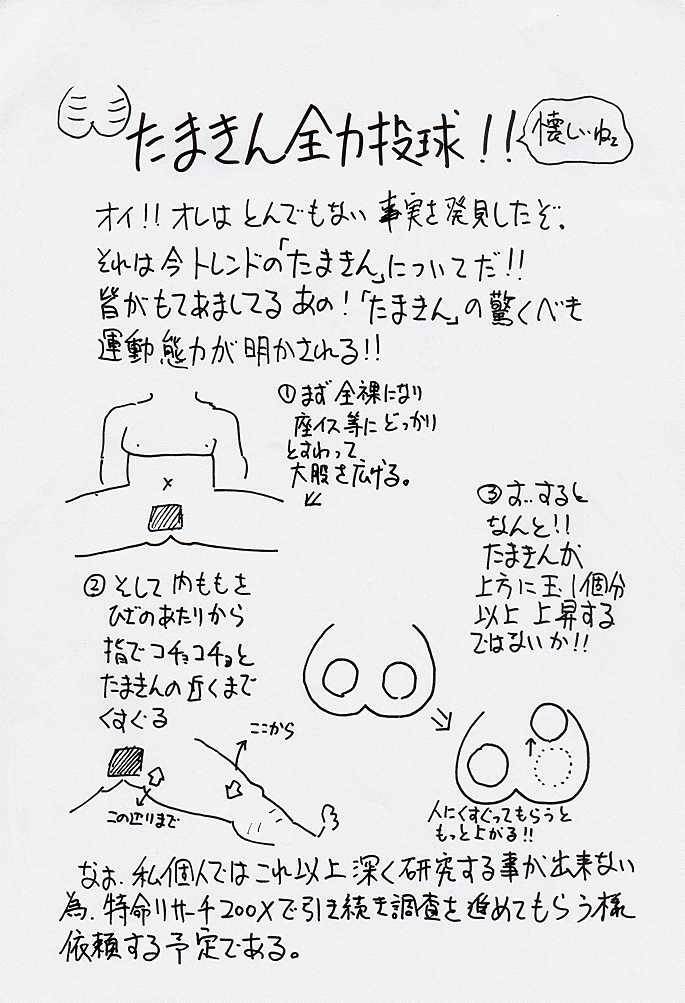 たまきん全力投球!!
懐しいねェ
オイ!!オレはとんでもない事実を発見したぞ.
それは今トレンドの「たまきん」についてだ!!
皆がもてあましてるあの!「たまきん」の驚くべき
運動態力が明かされる!!
①まず全裸になり
座イス等にどっかり
とすわって
大股を広げる。
②そして内ももを
ひざのあたりから
指でコチョコチョと
たまきんの近くまで
くすぐる
ここから
この辺りまで
③す..すると
なんと!!
たまきんが
上方に玉1個分
以上上昇する
ではないか!!
人にくすぐってもらうと
もっと上がる!!
なお.私個人ではこれ以上深く研究する事が出来ない
為.特命リサーチ200Xで引き続き調査を進めてもらう様
依頼する予定である。